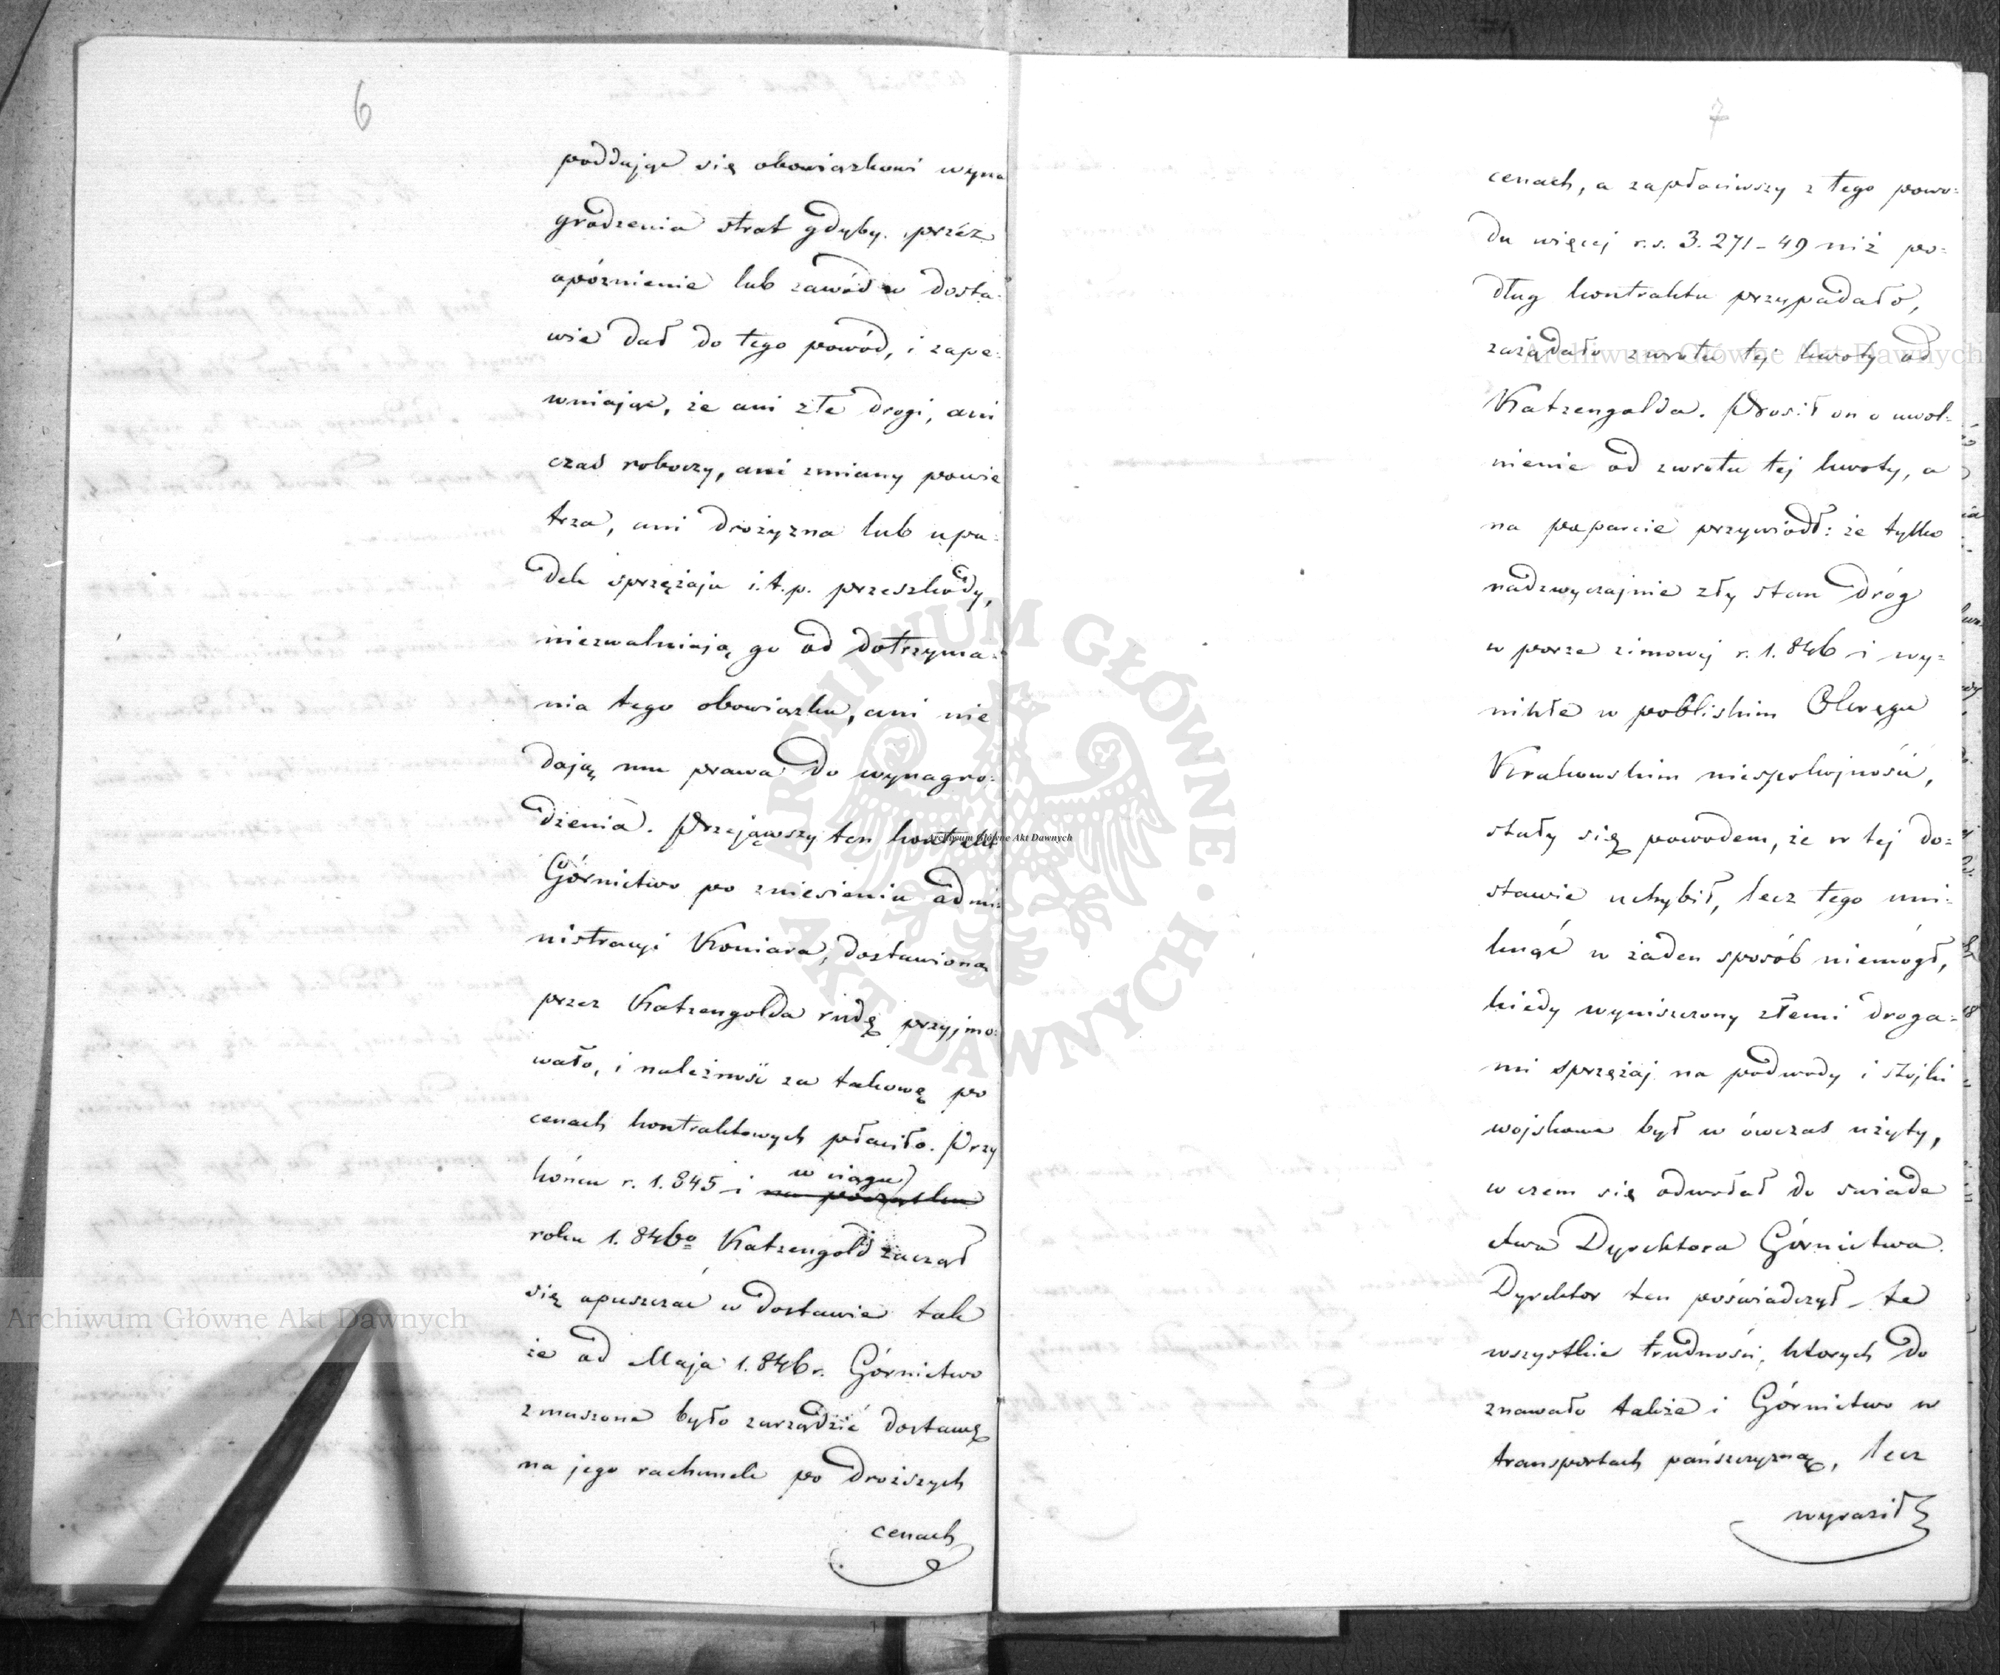 6
poddając się obowiązkowi wyna
grodzenia strat gdyby przez
opóznienie lub zawód w dosta-
wie dał do tego powód, i zape-
wniając, że ani złe drogi, ani
czas roboczy, ani zmiany powie
trza, ani drożyzna lub upa-
dek sprzężaju i.t.p. przeszkody,
niezwalniają go od dotrzyma-
nia tego obowiązku, ani nie
dają mu prawa do wynagro-
dzenia. Przejąwszy ten kontrakt
Górnictwo po zniesieniu admi-
nistracyi Koniara, dostawioną
przez Katzengolda rudę przyjmo-
wało, i należność za takową po
cenach kontraktowych płaciło. Przy
końcu r. 1.845 i na początku w ciągu
roku 1.846º Katzengold zaczął
się opuszczać w dostawie tak
że od Maja 1.846 r. Górnictwo
zmuszone było zarządzić dostawę
na jego rachunek po droższych
cenach
7
cenach, a zapłaciwszy z tego powo-
du więcej r.s. 3.271-49 niż po-
dług kontraktu przypadało,
zażądało zwrotu tej kwoty od
Katzengolda. Prosił on o uwol-
nienie od zwrotu tej kwoty, a
na poparcie przywiódł: że tylko
nadzwyczajnie zły stan dróg
w porze zimowej r. 1.846 i wy-
nikłe w pobliskim Okręgu
Krakowskim niespokojności,
stały się powodem, że w tej do-
stawie uchybił, lecz tego uni-
knąć w żaden sposób niemógł,
kiedy wyniszczony złemi droga-
mi sprzężaj na podwody i stójki
wojskowe był w ówczas użyty,
w czem się odwołał do świade
ctwa Dyrektora Górnictwa.
Dyrektor ten poświadczył te
wszystkie trudności, których do
znawało także i Górnictwo w
transportach pańszczyzną, lecz
wyraził
ARCHIWUM GŁÓWNE
AKT DAWNYCH
Archiwum Główne Akt Dawnych
Archiwum Główne Akt Dawnych
Archiwum Główne Akt Dawnych